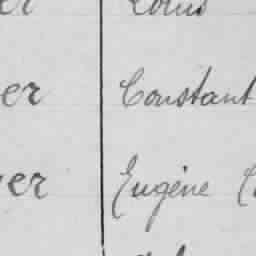 Louis
er Constant
er Eugène